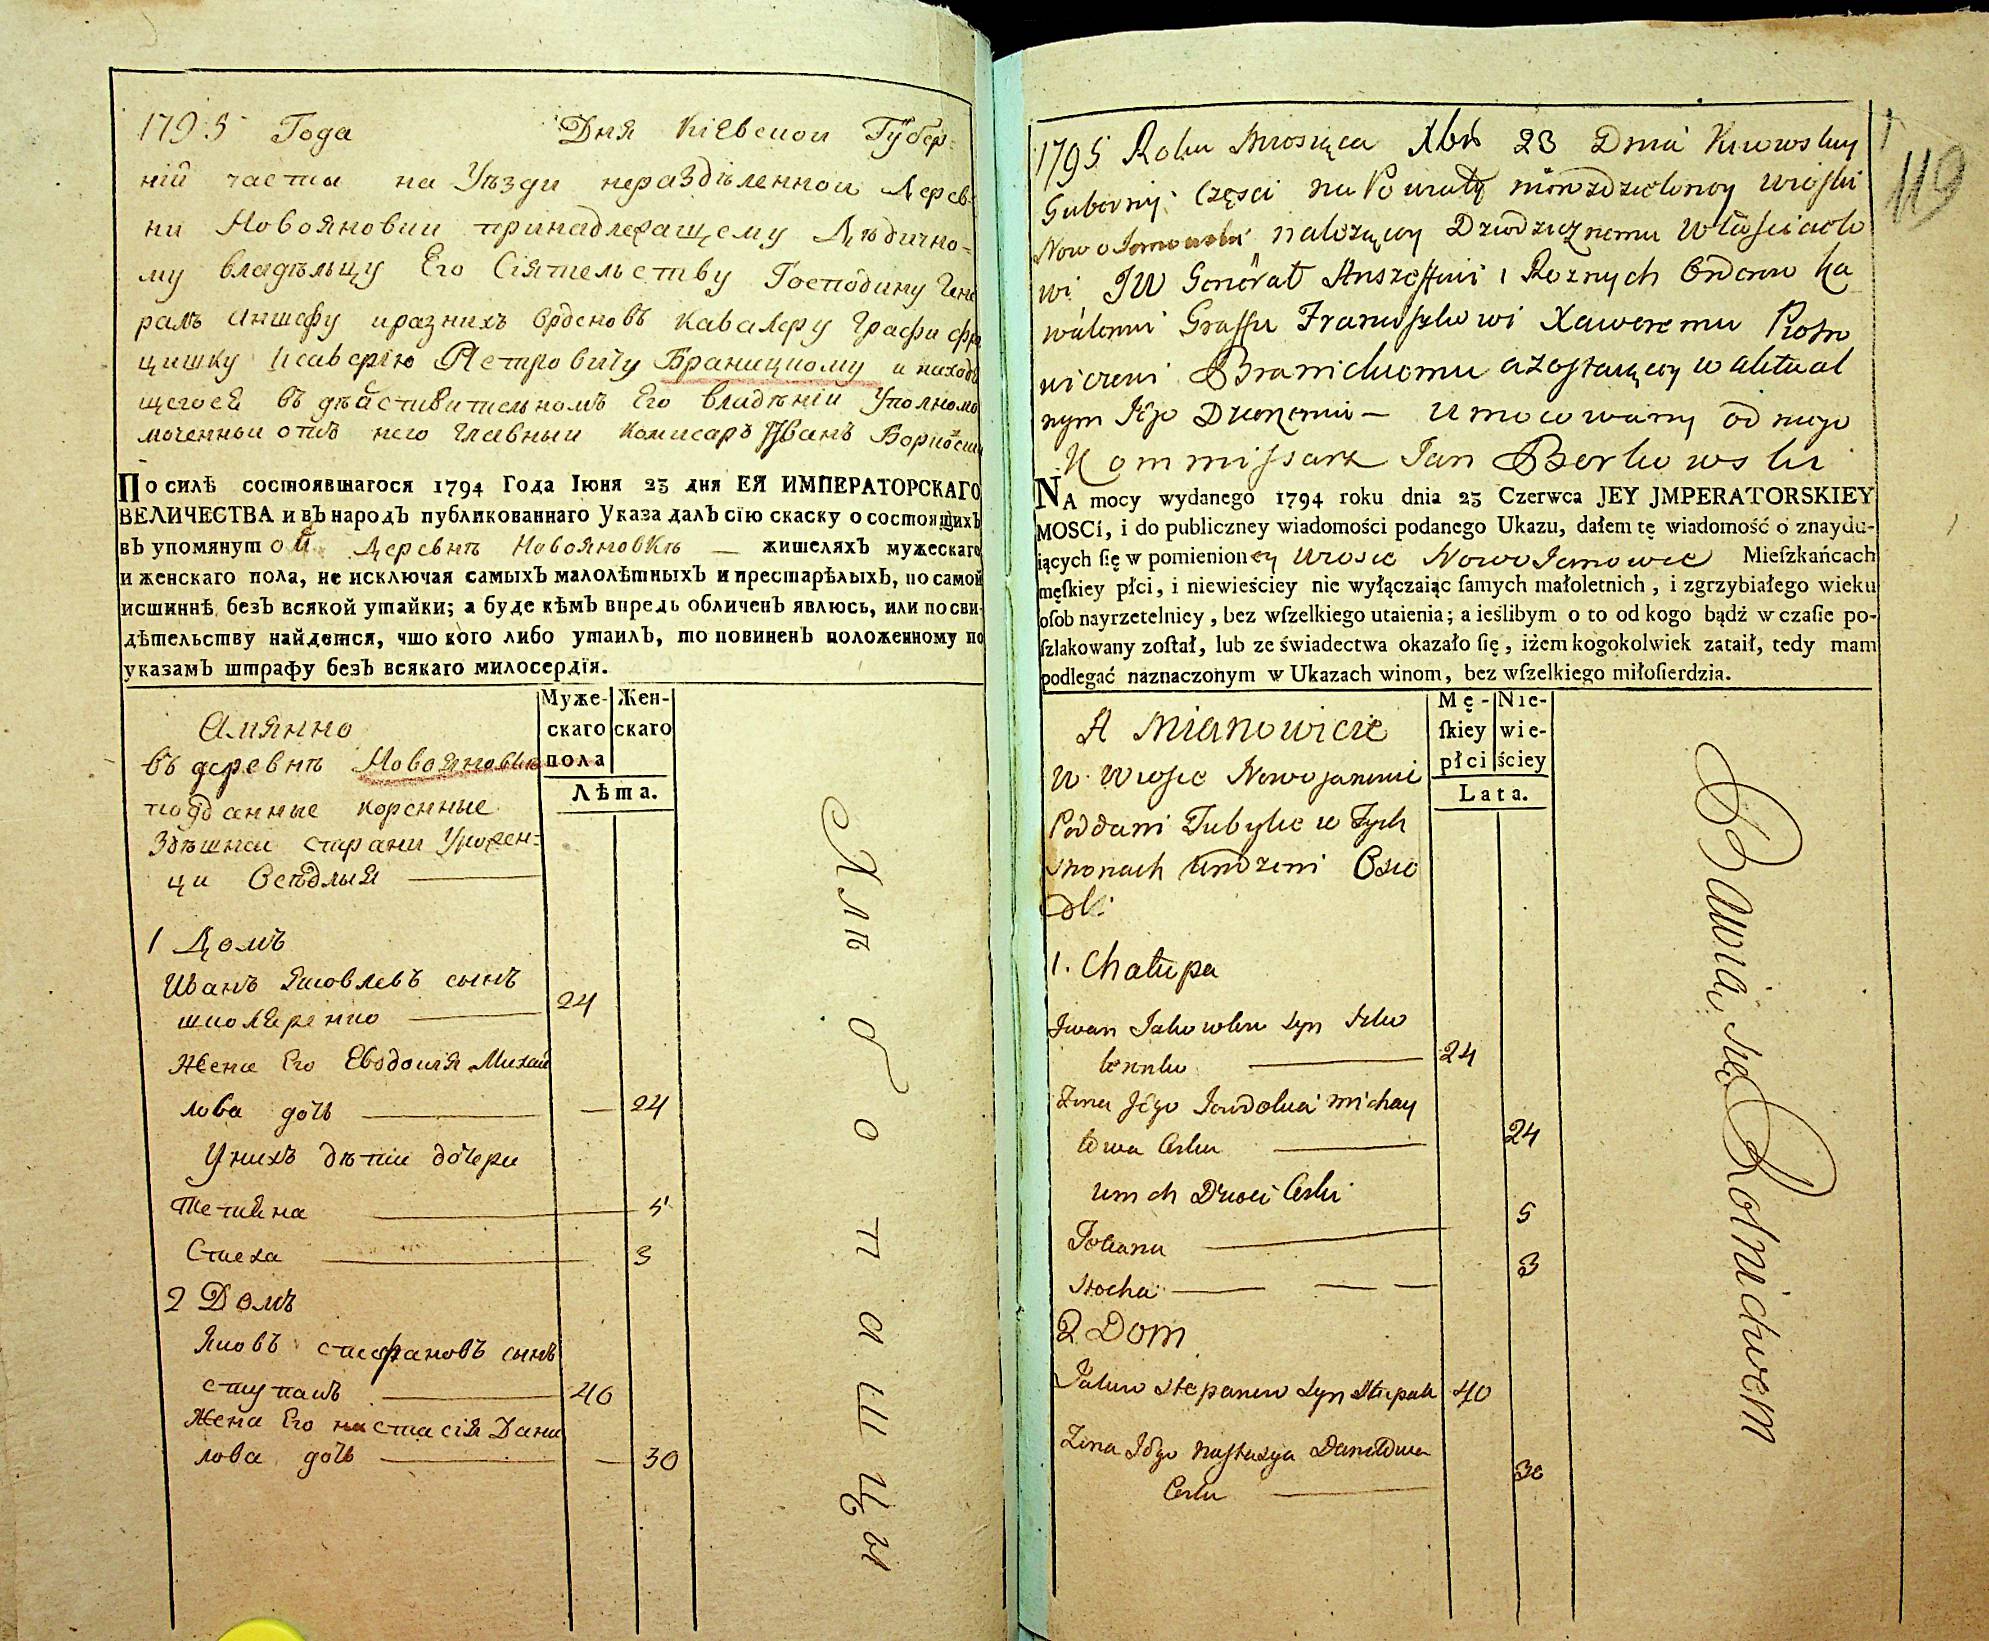 1795 Года Дня Кіевской Губер-
ніи части на Уѣзди нераздѣленной Дерев-
ни Новояновки принадлежащему Дѣдично-
му владѣльцу Его Сіятельству Господину Гене
ралъ аншефу и разнихъ Орденовъ Кавалеру Графи Фра
цишку Ксаверію Петровичу Браницкому и находя
щегося въ дѣйствительномъ Его владѣніи Уполномо
моченный отъ него Главный Комисаръ Иванъ Борковски
По силѣ состоявшагося 1794 Года Iюня 23 дня ЕЯ ИМПЕРАТОРСКАГО
ВЕЛИЧЕСТВА и въ народъ публикованнаго Указа далъ сїю скаску о состоящихъ
въ упомянутой Деревнѣ Новояновкѣ — жителяхъ мужескаго
и женскаго пола, не исключая самыхъ малолѣтныхъ и престарѣлыхъ, по самой
истиннѣ безъ всякой утайки; а буде кѣмъ впредь обличенъ явлюсь, или по сви-
дѣтельству найдется, что кого либо утаилъ, то повиненъ положенному по
указамъ штрафу безъ всякаго милосердїя.
Муже- Жен-
скаго скаго
пола
Лѣта.
Амянно
въ деревнѣ Новояновкѣ
подданные коренные
Здѣшнеи старани Урожен-
ци Осѣдлыя
1 Домъ
Иванъ Яковлевъ сынъ
24
Жена Его Евдокія Михай
лова дочь — 24
У нихъ дѣтии дочери
Тетияна — 5
Стеха — 3
2 Домъ
Яковъ Стефановъ сынъ
ступакъ — 40
Жена Его Настасія Дани
лова дочь — 30
Хлѣбопашцы
119
1795 Roku Miesiąca Xbra 23 Dnia Kiiowskiey
Gubernij Częsci na Powiaty nierozdzieloney wioski
Nowo Janowki należącey Dziedzicznemu Właścicielo
wi JW Generał Anszeffowi i Roznych Orderow Ka
walerowi Graffu Franciszkowi Xaweremu Piotro
wiczowi Branickiemu a zostaiącey w aktual
nym Jego Dzierzeniu — Umocowany od niego
Kommissarz Jan Borkowski
NA mocy wydanego 1794 roku dnia 23 Czerwca JEY JMPERATORSKIEY
MOSCi, i do publiczney wiadomości podanego Ukazu, dałem tę wiadomość o znaydu-
iących ſię w pomienioney wiosce Nowo Janowce Mieſzkańcach
męſkiey płci, i niewieściey nie wyłączaiąc ſamych małoletnich, i zgrzybiałego wieku
oſob nayrzetelniey, bez wſzelkiego utaienia; a ieślibym o to od kogo bądź w czaſie po-
ſzlakowany zoſtał, lub ze świadectwa okazało ſię, iżem kogokolwiek zataił, tedy mam
podlegać naznaczonym w Ukazach winom, bez wſzelkiego miłoſierdzia.
Mę- Nie-
ſkiey wie-
płci ściey
Lata.
A Mianowicie
w wiosce Nowojanowce
Poddani Tubylce w Tych
stronach urodzeni Osie
dli
1. Chałupa
Jwan Jakowlew syn
24
Zona Jego Jewdokia Michay
łowa Corka — 24
u nich Dzieci Corki
Tetiana — 5
Stecha — 3
2 Dom
Jakow Stepanow syn Stupak 40
Zona Jego Nastazya Daniłowa
Corka — 30
Bawią się Rolnictwem